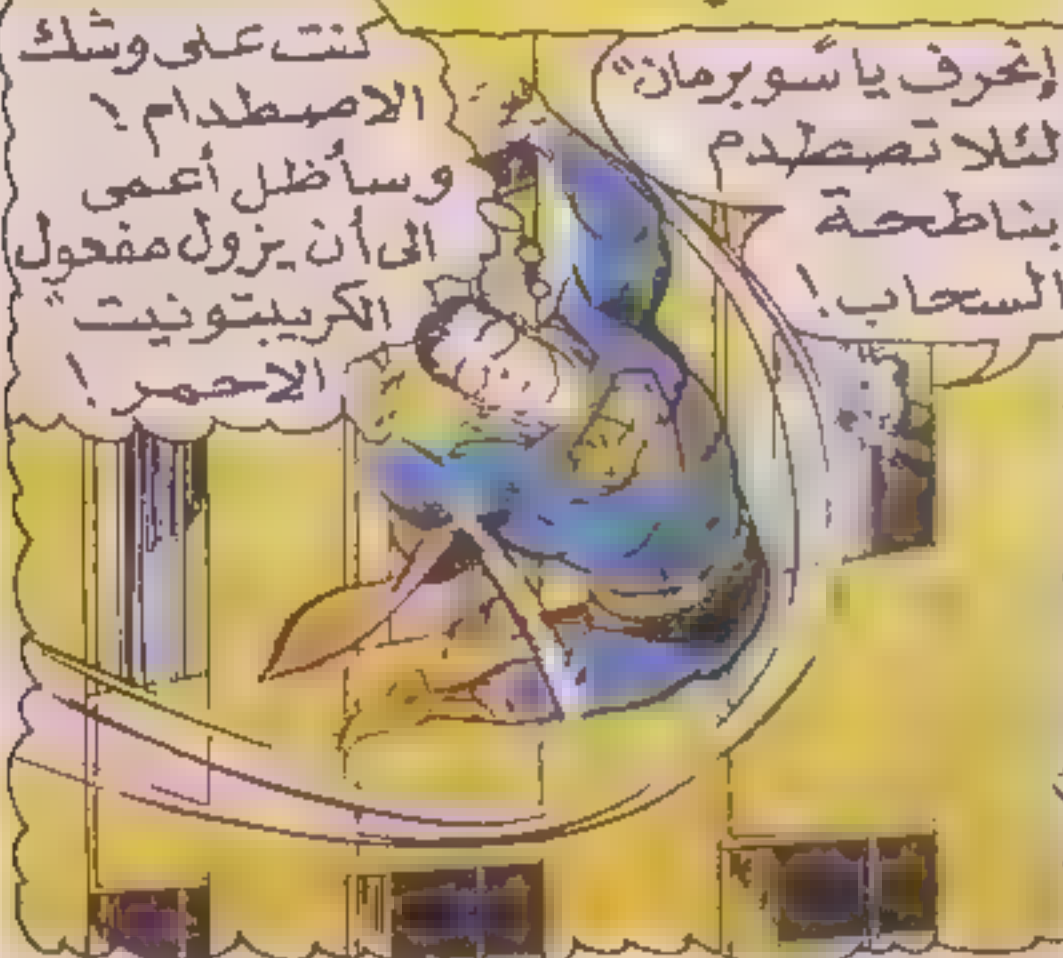 إنحرف يا سوبرمان"
لئلا تصطدم
بناطحة
السحاب !
كنت على وشك
الاصطدام !
وسأظل أعمى
الى أن يزول مفعول
الكريبتونيت"
الاحمر !